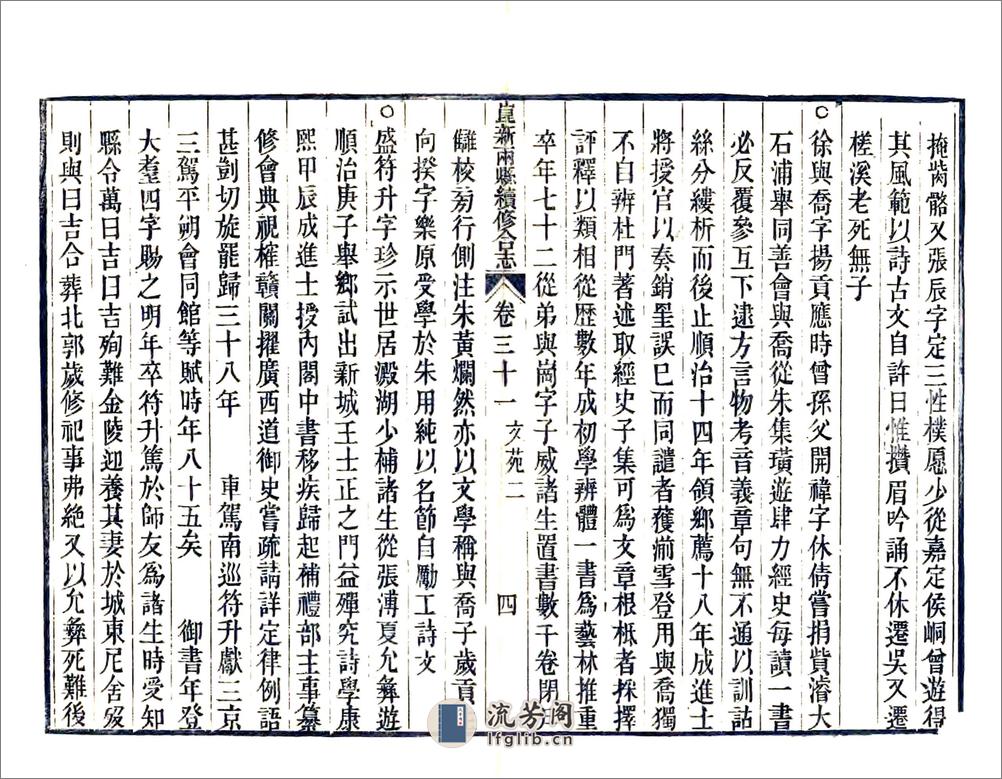 掩齒骼又張辰字定三性樸愿少從嘉定侯峒曾遊得
其風範以詩古文自許日惟攢眉吟誦不休遷吳又遷
槎溪老死無子
○徐與喬字揚貢應時曾孫父開禕字休倩嘗捐貲濬大
石浦舉同善會與喬從朱集璜遊肆力經史每讀一書
必反覆參互下逮方言物考音義章句無不通以訓詁
絲分縷析而後止順治十四年領鄉薦十八年成進士
將授官以奏銷罣誤已而同譴者獲湔雪登用與喬獨
不自辨杜門著述取經史子集可為文章根柢者採擇
評釋以類相從歷數年成初學辨體一書為藝林推重
卒年七十二從弟與崗字子威諸生置書數千卷閉戶
崑新兩縣續修合志 卷三十一 文苑二 四
讎校旁行側注朱黃爛然亦以文學稱與喬子歲貢生
向揆字樂原受學於朱用純以名節自勵工詩文
○盛符升字珍示世居澱湖少補諸生從張溥夏允彝遊
順治庚子舉鄉試出新城王士正之門益殫究詩學康
熙甲辰成進士授內閣中書移疾歸起補禮部主事纂
修會典視榷贛關擢廣西道御史嘗疏請詳定律例語
甚剴切旋罷歸三十八年 車駕南巡符升獻三京
三駕平朔會同館等賦時年八十五矣 御書年登
大耋四字賜之明年卒符升篤於師友為諸生時受知
縣令萬曰吉曰吉殉難金陵迎養其妻於城東尼舍歿
則與曰吉合葬北郭歲修祀事弗絕又以允彝死難後
流芳閣
lfglib.cn